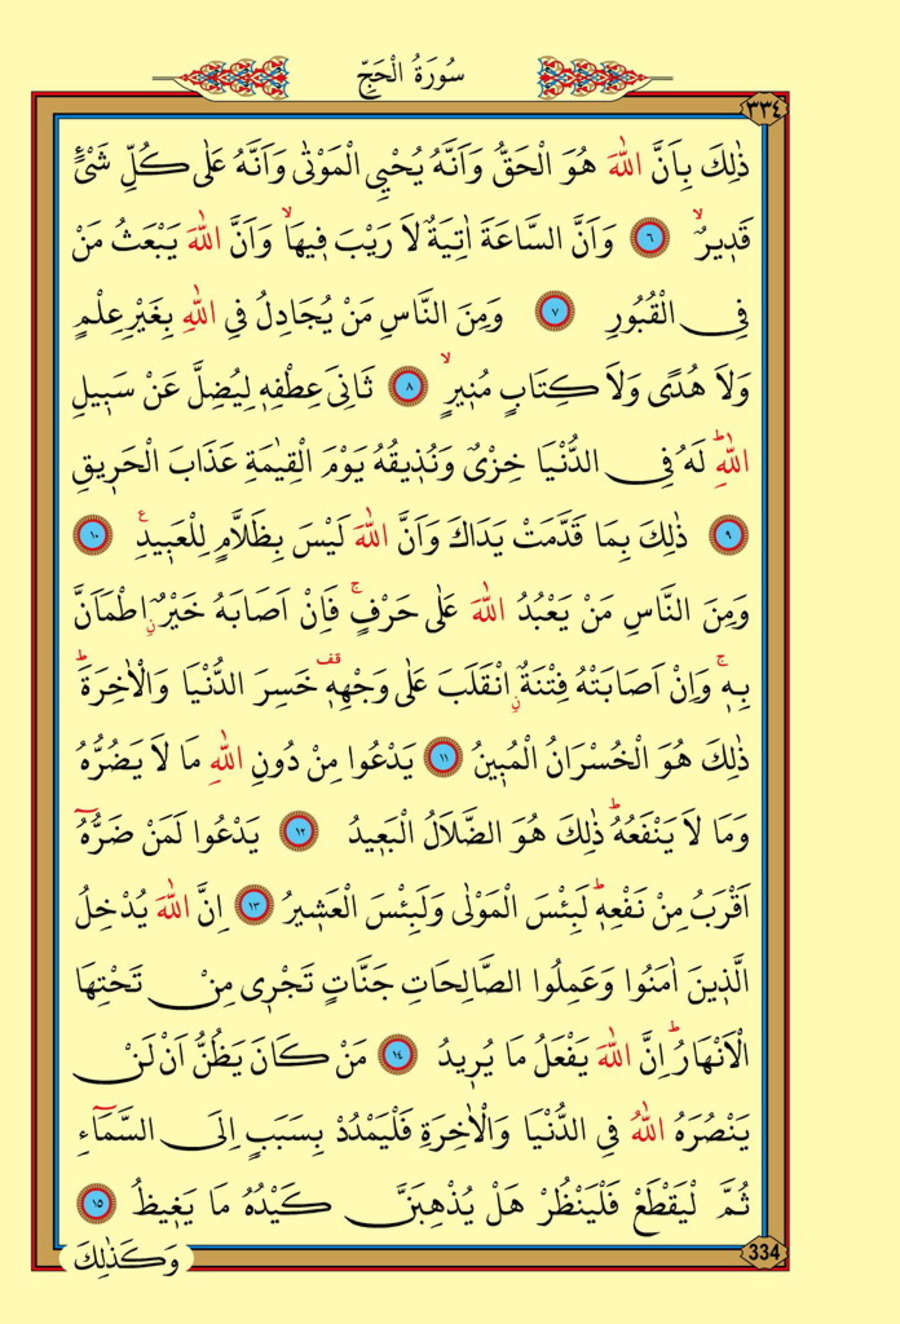 سُورَةُ الْحَجِّ
٣٣٤
ذٰلِكَ بِاَنَّ اللّٰهَ هُوَ الْحَقُّ وَاَنَّهُ يُحْيِي الْمَوْتٰى وَاَنَّهُ عَلٰى كُلِّ شَيْءٍ
قَد۪يرٌۙ ٦ وَاَنَّ السَّاعَةَ اٰتِيَةٌ لَا رَيْبَ ف۪يهَاۙ وَاَنَّ اللّٰهَ يَبْعَثُ مَنْ
فِي الْقُبُورِ ٧ وَمِنَ النَّاسِ مَنْ يُجَادِلُ فِي اللّٰهِ بِغَيْرِ عِلْمٍ
وَلَا هُدًى وَلَا كِتَابٍ مُن۪يرٍۙ ٨ ثَانِيَ عِطْفِه۪ لِيُضِلَّ عَنْ سَب۪يلِ
اللّٰهِۜ لَهُ فِي الدُّنْيَا خِزْيٌ وَنُذ۪يقُهُ يَوْمَ الْقِيٰمَةِ عَذَابَ الْحَر۪يقِ
٩ ذٰلِكَ بِمَا قَدَّمَتْ يَدَاكَ وَاَنَّ اللّٰهَ لَيْسَ بِظَلَّامٍ لِلْعَب۪يدِ ع ١٠
وَمِنَ النَّاسِ مَنْ يَعْبُدُ اللّٰهَ عَلٰى حَرْفٍۚ فَاِنْ اَصَابَهُ خَيْرٌۨ اطْمَاَنَّ
بِه۪ۚ وَاِنْ اَصَابَتْهُ فِتْنَةٌۨ انْقَلَبَ عَلٰى وَجْهِه۪ قف خَسِرَ الدُّنْيَا وَالْاٰخِرَةَۜ
ذٰلِكَ هُوَ الْخُسْرَانُ الْمُب۪ينُ ١١ يَدْعُوا مِنْ دُونِ اللّٰهِ مَا لَا يَضُرُّهُ
وَمَا لَا يَنْفَعُهُۜ ذٰلِكَ هُوَ الضَّلَالُ الْبَع۪يدُ ١٢ يَدْعُوا لَمَنْ ضَرُّهُٓ
اَقْرَبُ مِنْ نَفْعِه۪ۜ لَبِئْسَ الْمَوْلٰى وَلَبِئْسَ الْعَش۪يرُ ١٣ اِنَّ اللّٰهَ يُدْخِلُ
الَّذ۪ينَ اٰمَنُوا وَعَمِلُوا الصَّالِحَاتِ جَنَّاتٍ تَجْر۪ي مِنْ تَحْتِهَا
الْاَنْهَارُۜ اِنَّ اللّٰهَ يَفْعَلُ مَا يُر۪يدُ ١٤ مَنْ كَانَ يَظُنُّ اَنْ لَنْ
يَنْصُرَهُ اللّٰهُ فِي الدُّنْيَا وَالْاٰخِرَةِ فَلْيَمْدُدْ بِسَبَبٍ اِلَى السَّمَٓاءِ
ثُمَّ لْيَقْطَعْ فَلْيَنْظُرْ هَلْ يُذْهِبَنَّ كَيْدُهُ مَا يَغ۪يظُ ١٥
334
وَكَذٰلِكَ